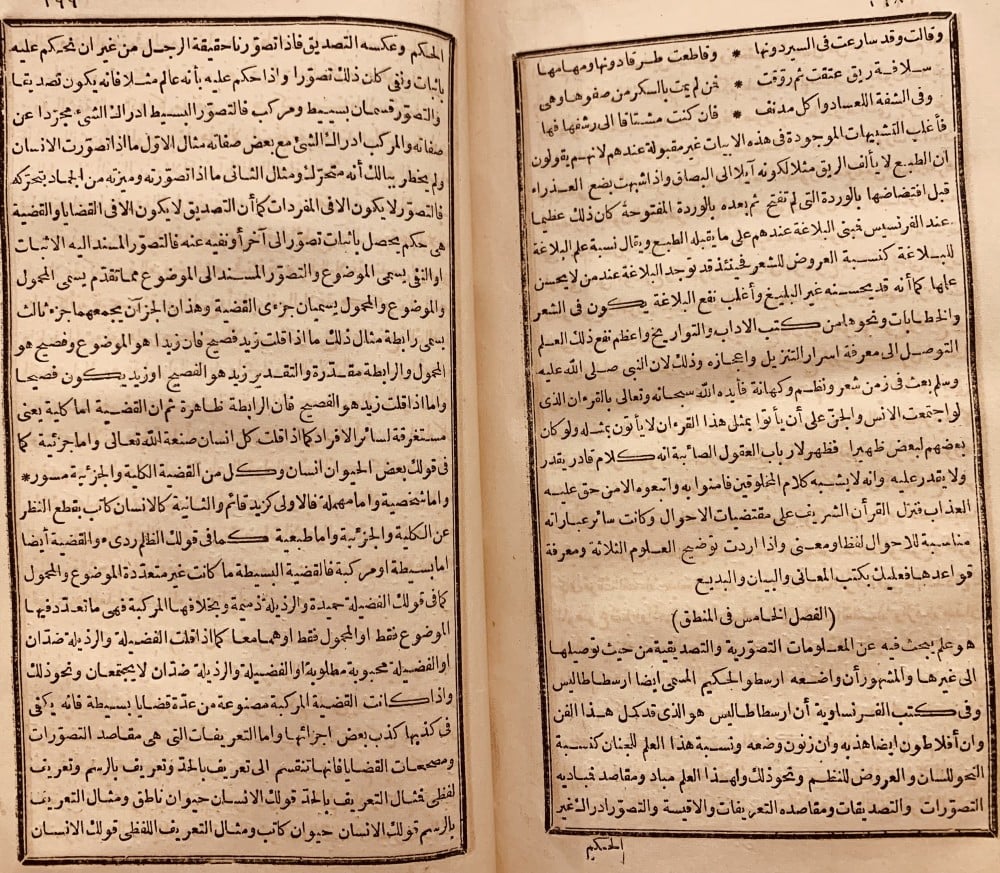 ١٩٨
وقالت وقد سارعت فى السير دونها * وقاطعت طرقا دونها ومهامها
سلافة ريق عتقت ثم روّقت * فمن لم يمت بالسكر من صفوها وهى
وفى الشفة اللعساد واكل مدنف * فان كنت مشتاقا الى رشفها فها
فأغلب التشبيهات الموجودة فى هذه الابيات غير مقبولة عندهم لانهم يقولون
ان الطبع لا يألف الريق مثلا لكونه آيلا الى البصاق واذا شبهت بضع العذراء
قبل افتضاضها بالوردة التى لم تفتح ثم بعده بالوردة المفتوحة كان ذلك عظيما
عند الفرنسيس فبنى البلاغة عندهم على ما يقبله الطبع ويقال نسبة علم البلاغة
للبلاغة كنسبة العروض للشعر فحينئذ قد توجد البلاغة عند من لا يحسن
علمها كما أنه قد يحسنه غير البليغ وأغلب نفع البلاغة يكون فى الشعر
والخطابات ونحوها من كتب الاداب والتواريخ واعظم نفع ذلك العلم
التوصل الى معرفة اسرار التنزيل واعجازه وذلك لان النبى صلى الله عليه
وسلم بعث فى زمن شعر ونظم وكهانة فأيده الله سبحانه وتعالى بالقرءان الذى
لو اجتمعت الانس والجنّ على أن يأتوا بمثل هذا القرءان لا يأتون بمثله ولو كان
بعضهم لبعض ظهيرا فظهر لارباب العقول الصائبة انه كلام قادر يقدر
ولا يقدر عليه وانه لا يشبه كلام المخلوقين فامنوا به واتبعوه الا من حق عليه
العذاب فنزل القرأن الشريف على مقتضيات الاحوال وكانت سائر عباراته
مناسبة للاحوال لفظا ومعنى واذا اردت توضيح العلوم الثلاثة ومعرفة
قواعدها فعليك بكتب المعانى والبيان والبديع
(الفصل الخامس فى المنطق)
هو علم يبحث فيه عن المعلومات التصورية والتصديقية من حيث توصيلها
الى غيرها والمشهور أن واضعه ارسطو الحكيم المسمى ايضا ارسطاطاليس
وفى كتب الفرنساوية أن ارسطاطاليس هو الذى قد كمل هذا الفن
وان أفلاطون ايضا هذبه وان زنون وضعه ونسبة هذا العلم للجنان كنسبة
النحو للسان والعروض للنظم ونحو ذلك ولهذا العلم مباد ومقاصد فمباديه
التصورات والتصديقات ومقاصده التعريفات والاقيسة والتصور ادراك غير
الحكيم
١٩٩
الحكم وعكسه التصديق فاذا تصورنا حقيقة الرجل من غير ان نحكم عليه
باثبات ونفى كان ذلك تصورا واذا حكم عليه بأنه عالم مثلا فانه يكون تصديقا
والتصور قسمان بسيط ومركب فالتصور البسيط ادراك الشئ مجردا عن
صفاته والمركب ادراك الشئ مع بعض صفاته مثال الاول ما اذا تصورت الانسان
ولم يخطر ببالك أنه متحرّك ومثال الثانى ما اذا تصورته وميزته من الجماد بتحركه
فالتصور لا يكون الا فى المفردات كما أن التصديق لا يكون الا فى القضايا والقضية
هى حكم يحصل باثبات تصور الى آخر أو نفيه عنه فالتصور المسند اليه الاثبات
او النفى يسمى الموضوع والتصور المسند الى الموضوع مما تقدم يسمى المحمول
والموضوع والمحمول يسميان جزءى القضية وهذان الجزآن يجمعهما جزء ثالث
يسمى رابطة مثال ذلك ما اذا قلت زيد فصيح فان زيدا هو الموضوع وفصيح هو
المحمول والرابطة مقدّرة والتقدير زيد هو الفصيح او زيد يكون فصيحا
واما اذا قلت زيد هو الفصيح فان الرابطة ظاهرة ثم ان القضية اما كلية يعنى
مستغرقة لسائر الافراد كما اذا قلت كل انسان صنعة الله تعالى واما جزئية كما
فى قولك بعض الحيوان انسان وكل من القضية الكلية والجزئية مسور *
واما شخصية واما مهملة فالاولى كزيد قائم والثانية كالانسان كاتب بقطع النظر
عن الكلية والجزئية واما طبيعية كما فى قولك الظلم ردىء والقضية أيضا
اما بسيطة او مركبة فالقضية البسيطة ما كانت غير متعددة الموضوع والمحمول
كما فى قولك الفضيلة حميدة والرذيلة ذميمة وبخلافها المركبة فهى ما تعدد فيها
الموضوع فقط او المحمول فقط او هما معا كما اذا قلت الفضيلة والرذيلة ضدّان
او الفضيلة محبوبة مطلوبة او الفضيلة والرذيلة ضدّان لا يجتمعان ونحو ذلك
واذا كانت القضية المركبة مصنوعة من عدّة قضايا بسيطة فانه يكفى
فى كذبها كذب بعض اجزائها واما التعريفات التى هى مقاصد التصورات
ومصححات القضايا فانها تنقسم الى تعريف بالحدّ وتعريف بالرسم وتعريف
لفظى فمثال التعريف بالحدّ قولك الانسان حيوان ناطق ومثال التعريف
بالرسم قولك الانسان حيوان كاتب ومثال التعريف اللفظى قولك الانسان